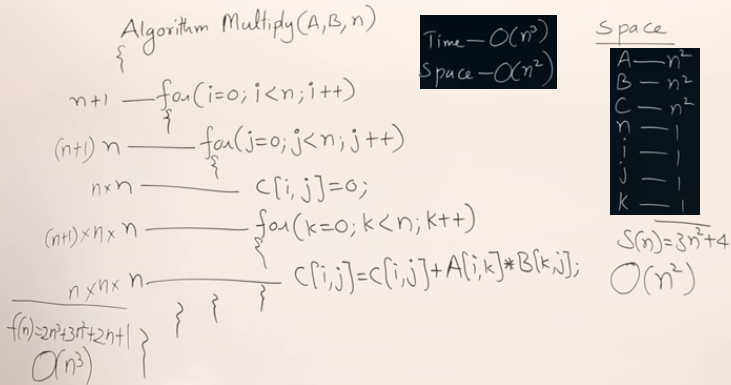 Algorithm Multiply(A,B,n)
{
n+1 — for(i=0; i<n; i++)
{
(n+1) n — for(j=0; j<n; j++)
{
n×n — C[i,j]=0;
(n+1)×n×n — for(k=0; k<n; k++)
{
n×n×n — C[i,j]=C[i,j]+A[i,k]*B[k,j];
} } }
f(n)=2n³+3n²+2n+1
}
O(n³)
Time — O(n³)
Space — O(n²)
Space
A — n²
B — n²
C — n²
n — 1
i — 1
j — 1
k — 1
S(n)=3n²+4
O(n²)